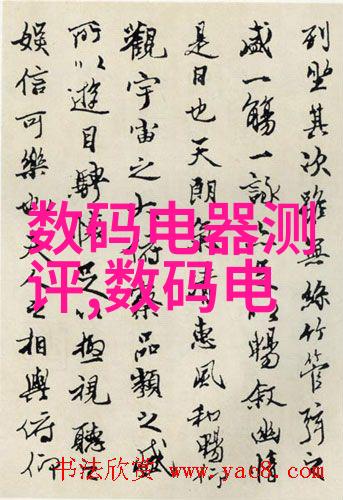 列坐其次雖無絲竹管弦之
盛一觴一詠足以暢敘幽情
是日也天朗氣清惠風和暢仰
觀宇宙之大俯察品類之盛
所以遊目騁懷足以極視聽之
娛信可樂也夫人之相與俯仰
数码电器测
评,数码电
书法欣赏 www.yac8.com